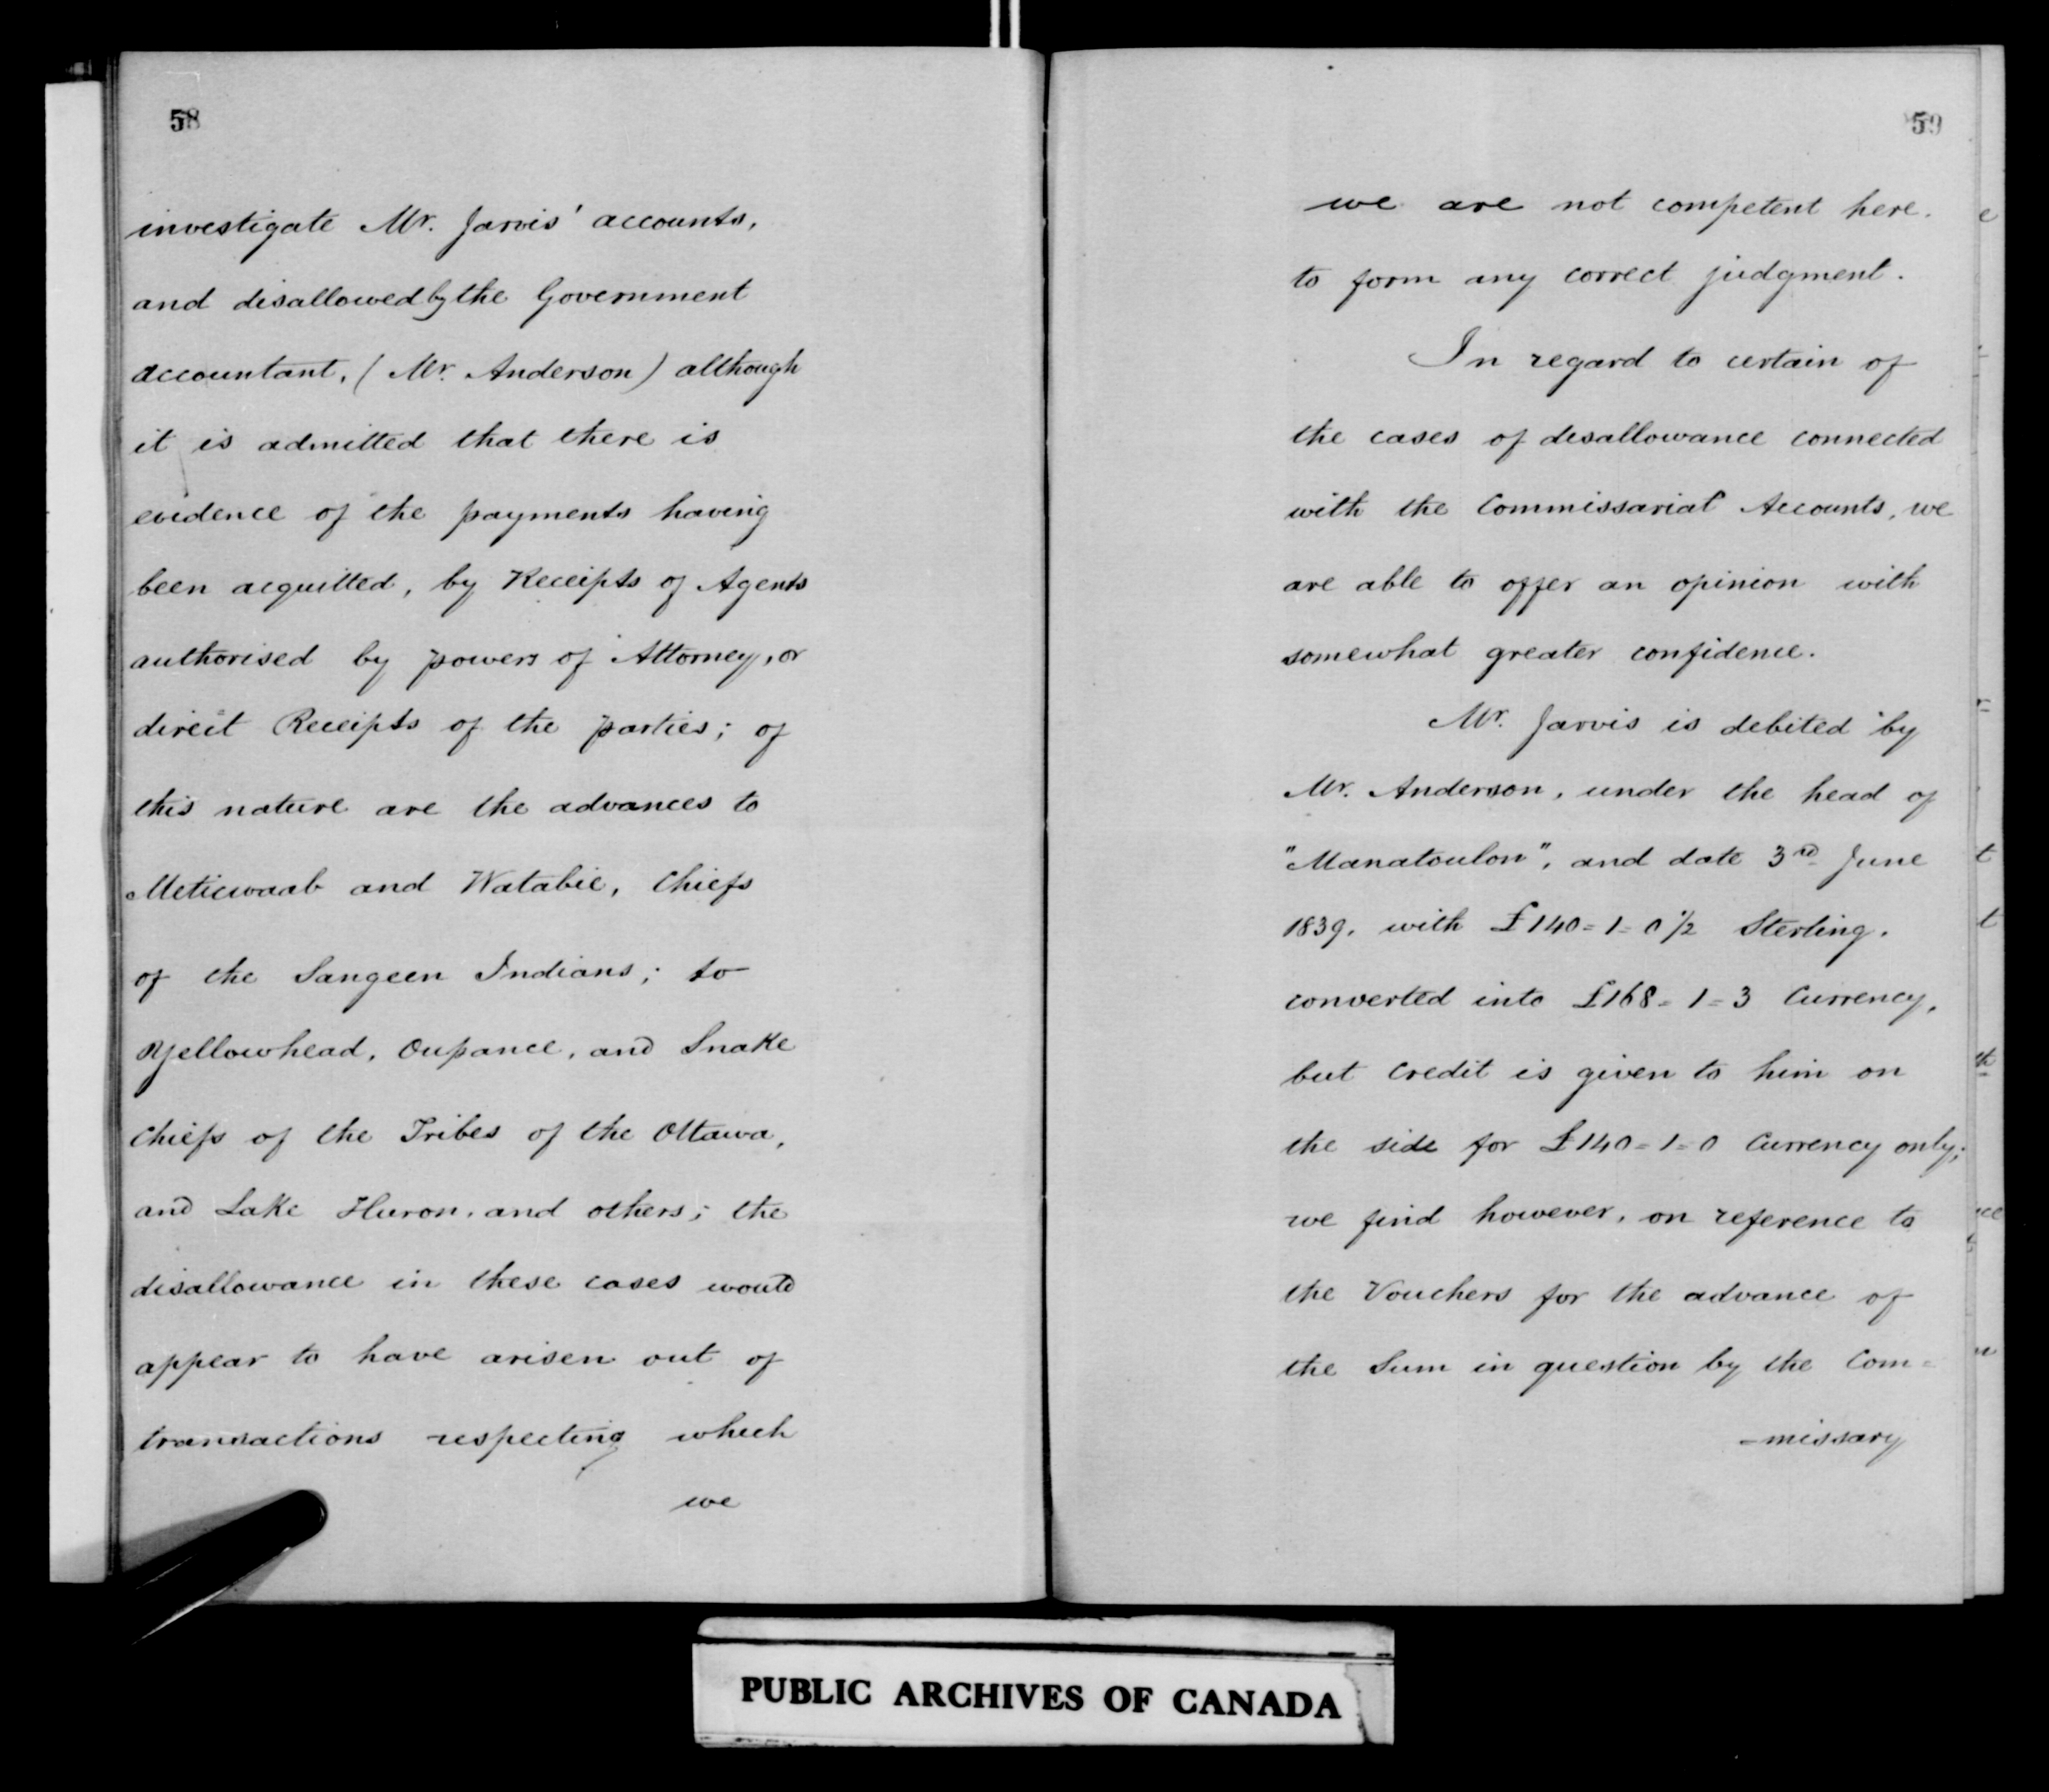 58
investigate Mr. Jarvis' accounts,
and disallowed by the Government
accountant, (Mr. Anderson) although
it is admitted that there is
evidence of the payments having
been acquitted, by Receipts of Agents
authorised by powers of Attorney, or
direct Receipts of the parties; of
this nature are the advances to
Meticwaab and Watabie, Chiefs
of the Sangeen Indians; to
Yellowhead, Oupance, and Snake
Chiefs of the Tribes of the Ottawa,
and Lake Huron, and others; the
disallowance in these cases would
appear to have arisen out of
transactions respecting which
we
59
we are not competent here.
to form any correct judgment.
In regard to certain of
the cases of disallowance connected
with the Commissariat Accounts, we
are able to offer an opinion with
somewhat greater confidence.
Mr. Jarvis is debited by
Mr. Anderson, under the head of
"Manatoulon", and date 3rd June
1839, with £140=1=0½ Sterling.
converted into £168=1=3 Currency,
but credit is given to him on
the side for £140=1=0 Currency only;
we find however, on reference to
the Vouchers for the advance of
the Sum in question by the Com=
=missary
PUBLIC ARCHIVES OF CANADA